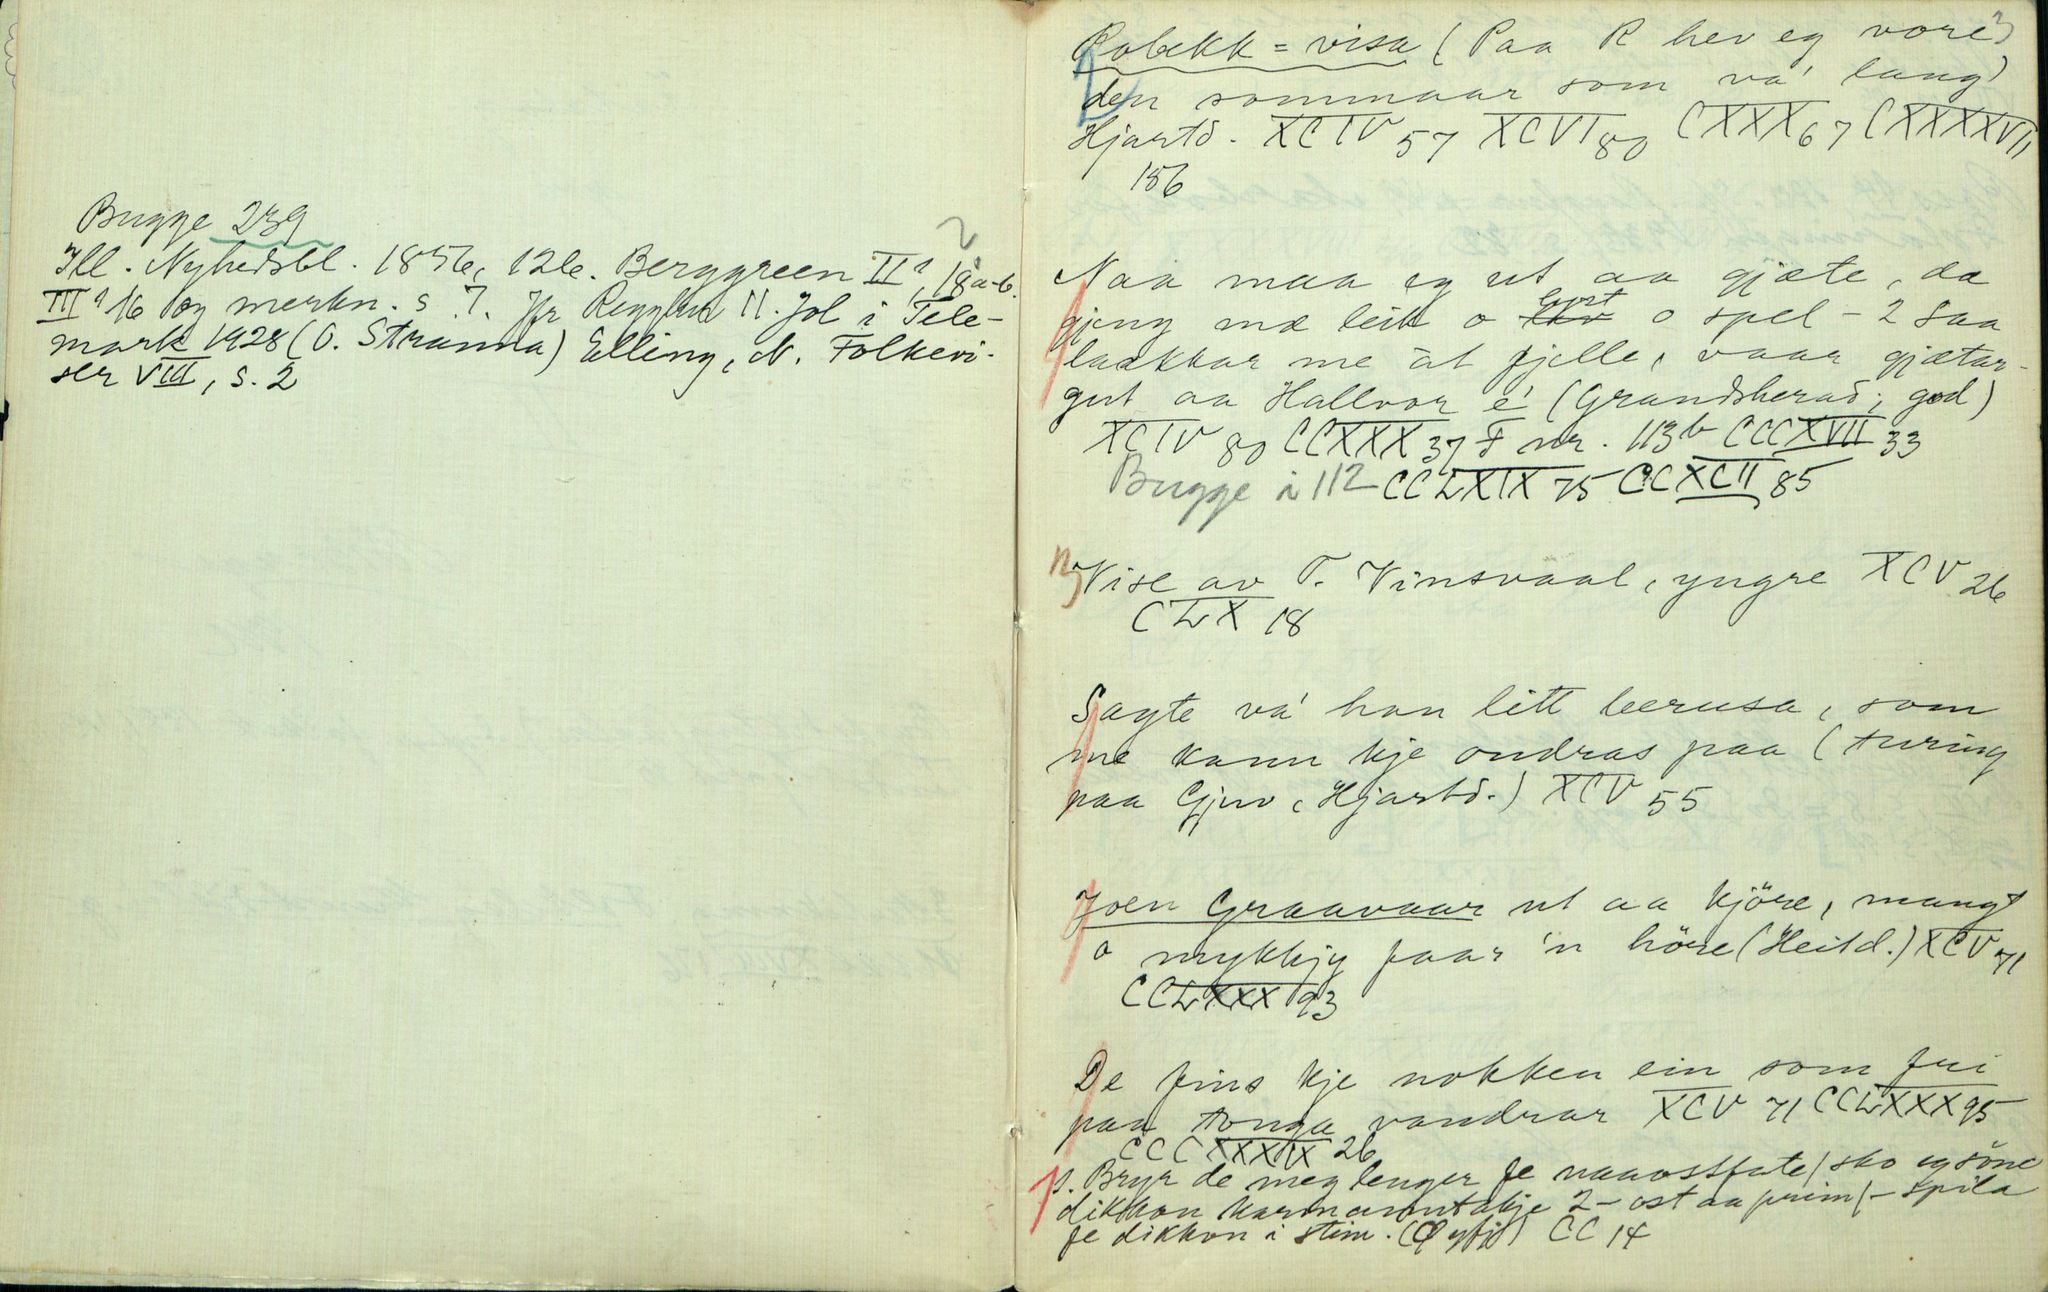 Bugge 239
Ill. Nyhedsbl. 1856, 126. Berggreen II², 18a-b.
III² 16 og merkn. s 7. Jfr Jol i Tele-
mark 1928 (O. Stranna) Elling, N. Folkevi-
ser VIII, s. 2
Robekk = visa (Paa R hev eg vore)
den sommaar som va' lang)
Hjartd. XCIV 57 XCVI 80 CXXX 67 CXXXXVII
186
Naa maa eg ut aa gjæte, da
gjeng mæ leik o o spel - 2 Saa
lakkar me åt fjelle, vaar gjætar-
gut aa Hallvor é (Grandsherad; god)
XCIV 80 CCXXX 37 F nr. 113b CCCXVII 33
Bugge i 112 CCLXIX 75 CCXCII 85
Vise av T. Vinsvaal, yngre XCV 26
CLX 18
Sagte va' han litt beerusa, som
me kann kje ondras paa (turing
paa Gjuv, Hjartd.) XCV 55
Joen Graavaar ut aa kjöre, mangt
o mykkjy faar 'n höre (Heitd.) XCV 71
CCLXXX 93
De fins kje nokken ein som fri
paa tonga vandrar XCV 71 CCLXXX 95
CCCXXXIX 26
s. Bryr de meg lenger fe sko eg
dikkon 2 - ost aa prim - spila
fe dikkon i stim. CC 14